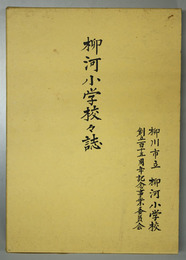 柳河小学校々誌
柳川市立 柳河小学校
創立百十五周年記念事業委員会